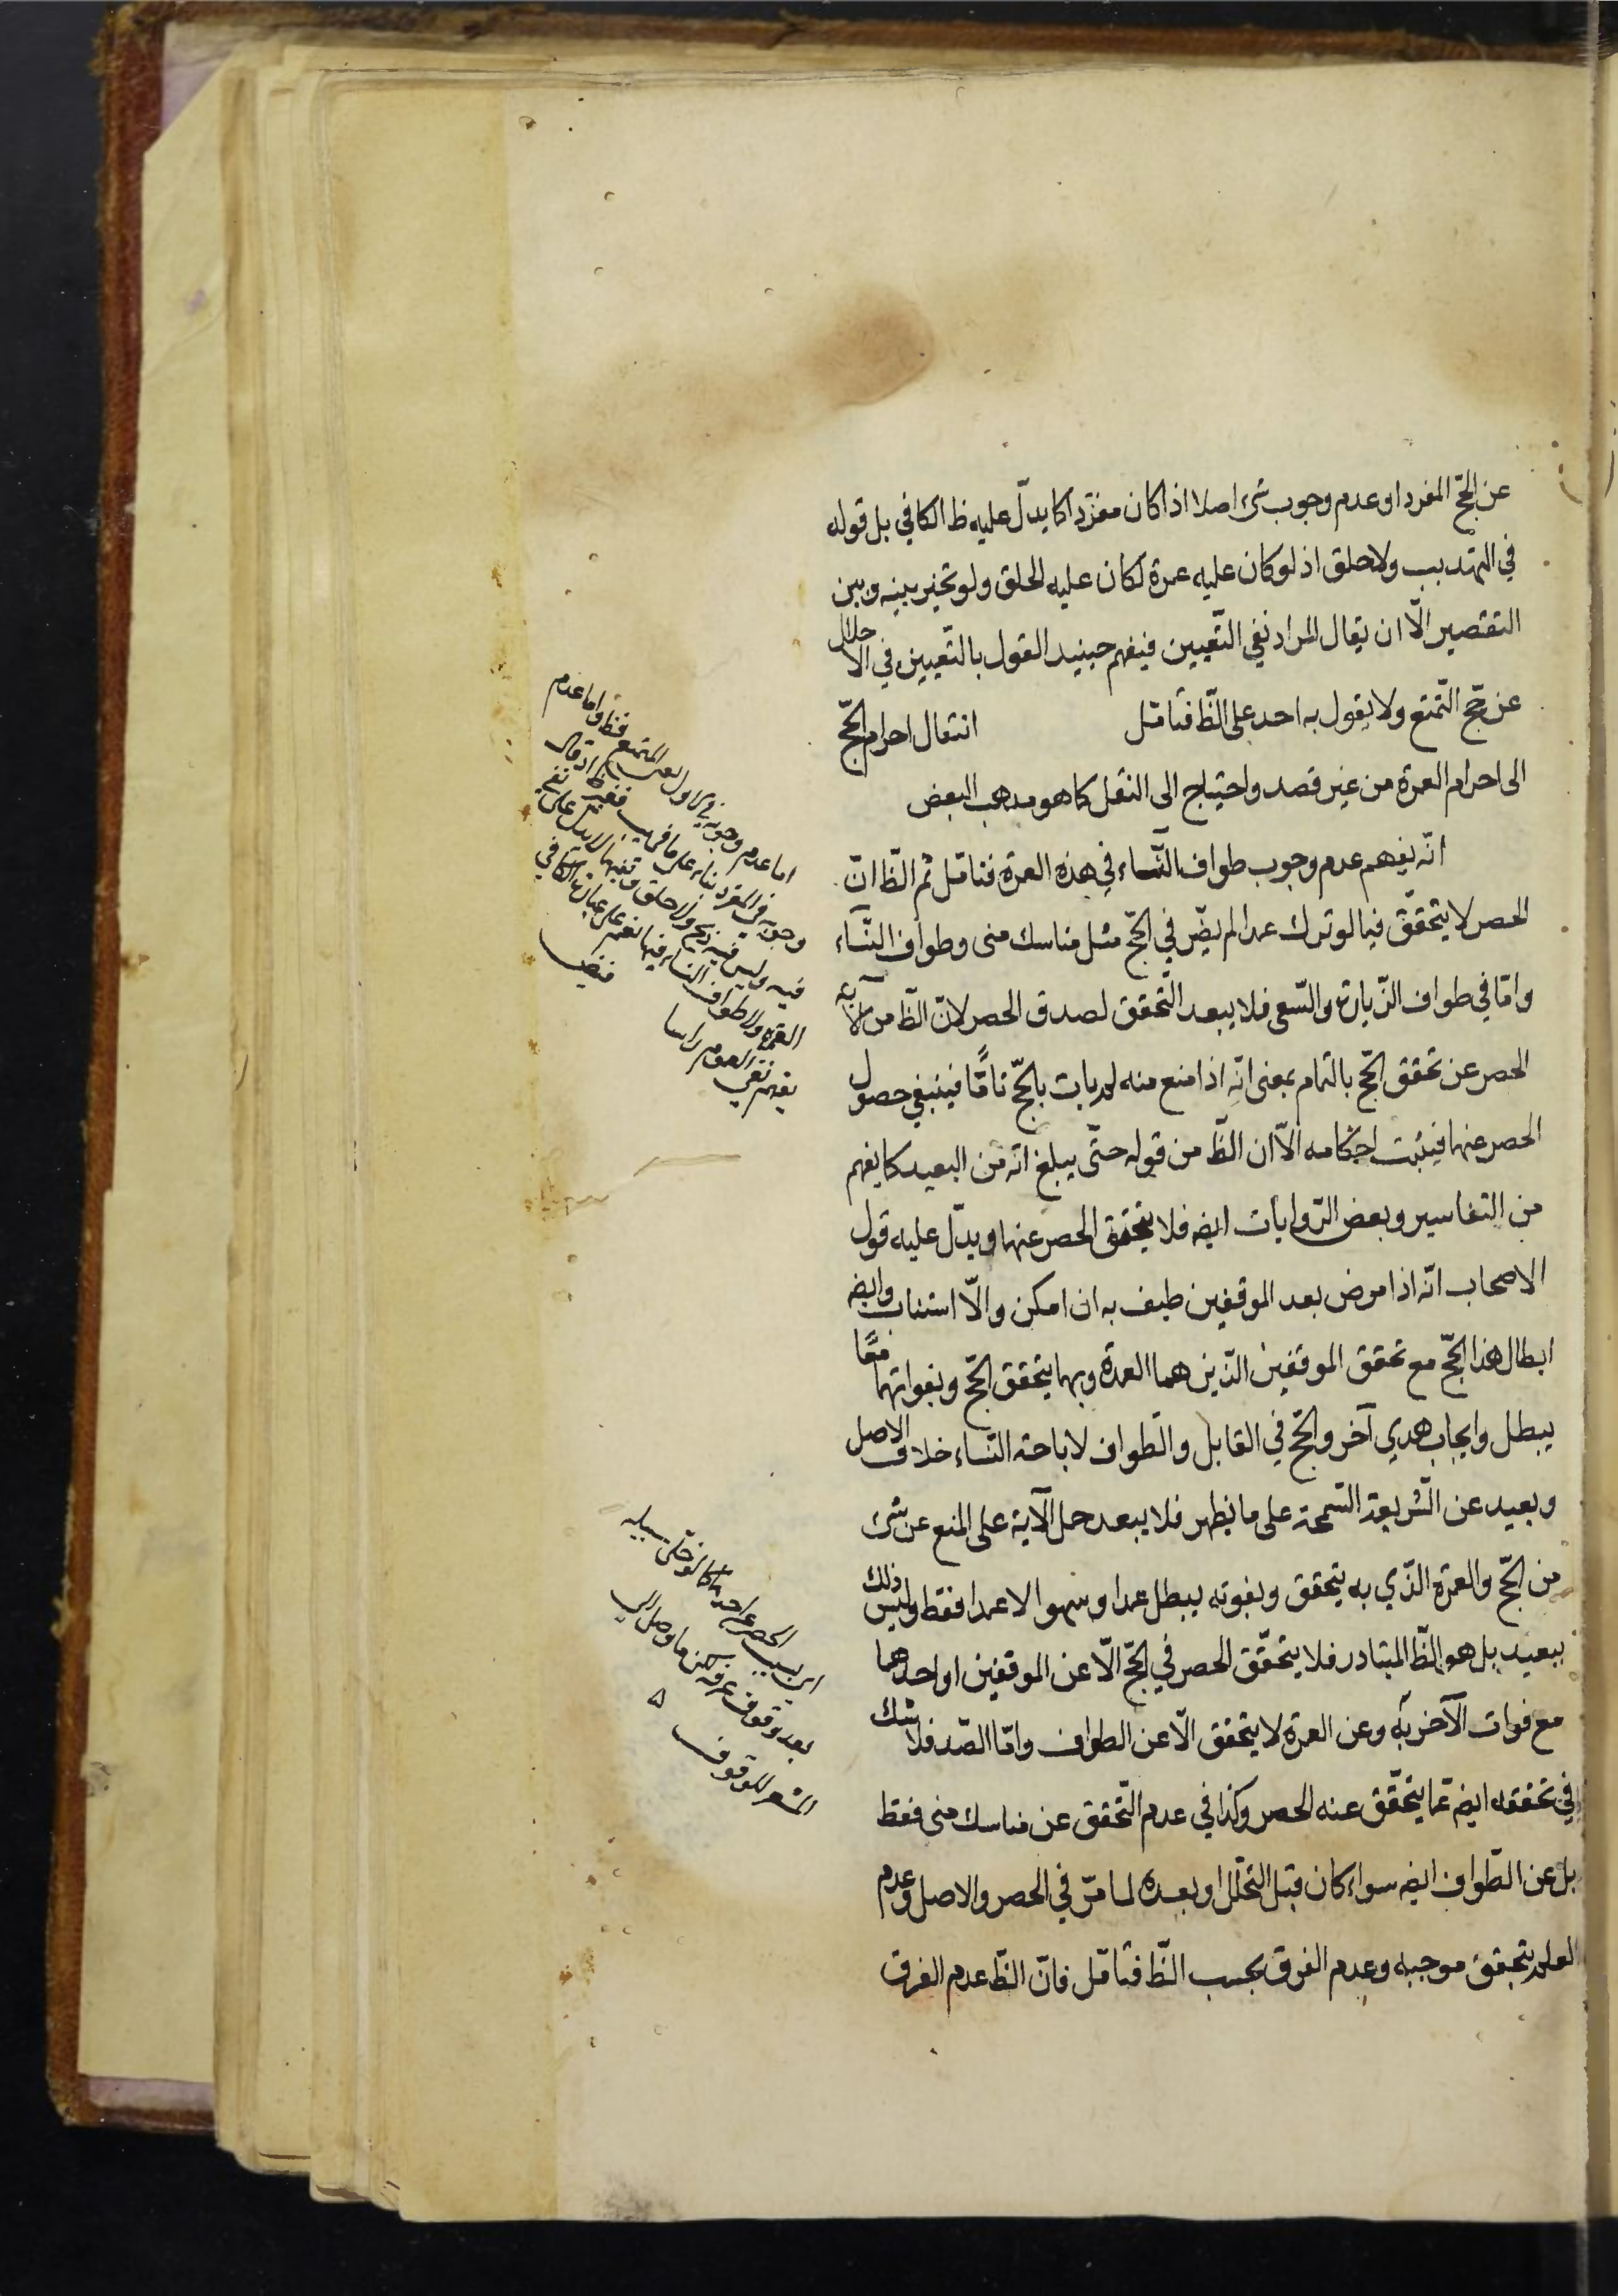 عن الحجّ المفرد او عدم وجوب شئ اصلا اذا كان مفردا كما يدلّ عليه ظ الكافي بل قوله
في التهذيب ولا حلق اذ لو كان عليه عمرة لكان عليه الحلق ولو تخير بينه وبين
التقصير الّا ان يقال المراد نفي التّعيين فيفهم حينيذ القول بالتّعيين في الاحلال
عن حجّ التّمتع ولا يقول به احد على الظّ فتامّل انتقال احرام الحجّ
الى احرام العمرة من غير قصد واحتياج الى النقل كما هو مذهب البعض
انّه يفهم عدم وجوب طواف النّساء في هذه العمرة فتامّل ثم الظّ انّ
الحصر لا يتحقّق فيما لو ترك عمدا لم يضّر في الحجّ مثل مناسك منى وطواف النّساء
وامّا في طواف الزّيارة والسّعي فلا يبعد التّحقق لصدق الحصر لانّ الظّ من الآية
الحصر عن تحقق الحجّ بالتمام بمعنى انّه اذا منع منه لم يات بالحجّ تامّاً فينبغي حصول
الحصر عنها فيثبت احكامه الّا ان الظّ من قوله حتّى يبلغ انّه من البعيد كما يفهم
من التفاسير وبعض الرّوايات ايضه فلا يتحقق الحصر عنها ويدلّ عليه قول
الاصحاب انّه اذا مرض بعد الموقفين طيف به ان امكن والّا استناب وايضه
ابطال هذا الحجّ مع تحقق الموقفين الّذين هما العمدة وبهما يتحقق الحجّ وبفواتهما معًا
يبطل وايجاب هدي آخر والحجّ في القابل والطّواف لاباحة النّساء خلاف الاصل
وبعيد عن الشّريعة السّمحة على ما يظهر فلا يبعد حمل الآية على المنع عن شئ
من الحجّ والعمرة الّذي به يتحقق وبفوته يبطل عمدا وسهوا لا عمدا فقط وليس ذلك
ببعيد بل هو الظّ المتبادر فلا يتحقّق الحصر في الحجّ الّا عن الموقفين او احدهما
مع فوات الآخر به وعن العمرة لا يتحقق الّا عن الطواف وامّا الصّد فلا شك
في تحققه ايضه عمّا يتحقّق عنه الحصر وكذا في عدم التّحقق عن مناسك منى فقط
بل عن الطّواف ايضه سواء كان قبل التحلّل او بعده لما مرّ في الحصر والاصل وعدم
العلم بتحقق موجبه وعدم الفرق بحسب الظّ فتامّل فانّ الظّ عدم الفرق
اما عدم وجوبه في
وجوبه في المفرد بناء على ما في
فيه وليس فيه ذبح ولا حلق
العمرة ولا طواف النساء فيها
يفهم نفي العموم راسا
بعد وقوف عرفة
المشعر للوقوف